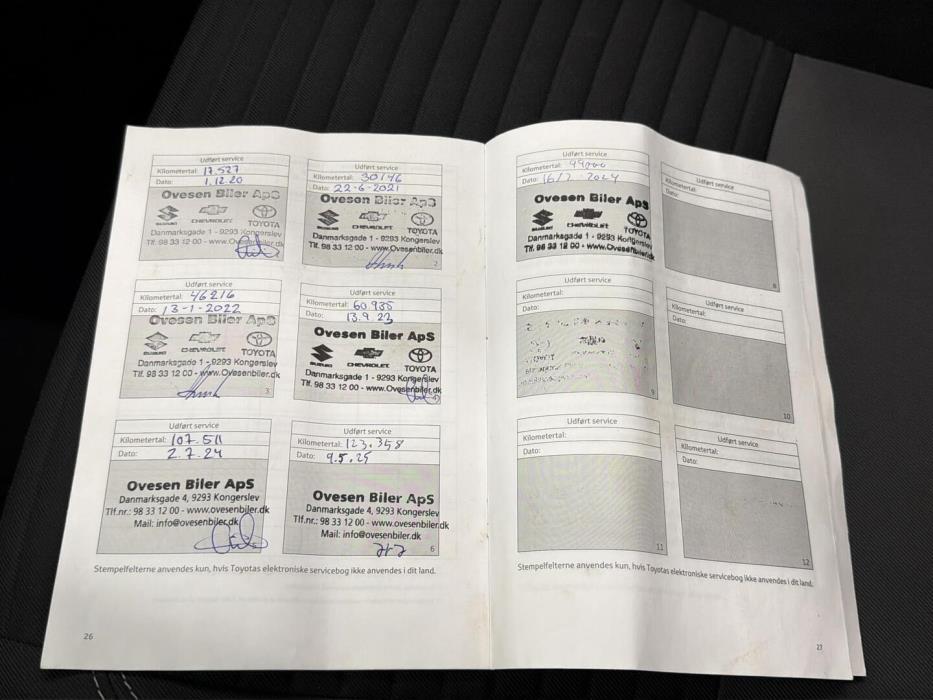 Udført service
Kilometertal: 17.527
Dato: 1.12.20
Ovesen Biler ApS
SUZUKI CHEVROLET TOYOTA
Danmarksgade 1 - 9293 Kongerslev
Tlf. 98 33 12 00 - www.Ovesenbiler.dk
Udført service
Kilometertal: 30146
Dato: 22-6-2021
Ovesen Biler ApS
SUZUKI CHEVROLET TOYOTA
Danmarksgade 1 - 9293 Kongerslev
Tlf. 98 33 12 00 - www.Ovesenbiler.dk
2
Udført service
Kilometertal: 46216
Dato: 13-1-2022
Ovesen Biler ApS
SUZUKI CHEVROLET TOYOTA
Danmarksgade 1 - 9293 Kongerslev
Tlf. 98 33 12 00 - www.Ovesenbiler.dk
3
Udført service
Kilometertal: 60935
Dato: 13.9.23
Ovesen Biler ApS
SUZUKI CHEVROLET TOYOTA
Danmarksgade 1 - 9293 Kongerslev
Tlf. 98 33 12 00 - www.Ovesenbiler.dk
Udført service
Kilometertal: 107.511
Dato: 2.7.24
Ovesen Biler ApS
Danmarksgade 4, 9293 Kongerslev
Tlf.nr.: 98 33 12 00 - www.ovesenbiler.dk
Mail: info@ovesenbiler.dk
Udført service
Kilometertal: 123.358
Dato: 9.5.25
Ovesen Biler ApS
Danmarksgade 4, 9293 Kongerslev
Tlf.nr.: 98 33 12 00 - www.ovesenbiler.dk
Mail: info@ovesenbiler.dk
6
Stempelfelterne anvendes kun, hvis Toyotas elektroniske servicebog ikke anvendes i dit land.
26
Udført service
Kilometertal:
Dato: 16/2 2024
Ovesen Biler ApS
SUZUKI CHEVROLET TOYOTA
Danmarksgade 1 - 9293 Kongerslev
Tlf. 98 33 12 00 - www.Ovesenbiler.dk
Udført service
Kilometertal:
Dato:
8
Udført service
Kilometertal:
Dato:
9
Udført service
Kilometertal:
Dato:
10
Udført service
Kilometertal:
Dato:
11
Udført service
Kilometertal:
Dato:
12
Stempelfelterne anvendes kun, hvis Toyotas elektroniske servicebog ikke anvendes i dit land.
27